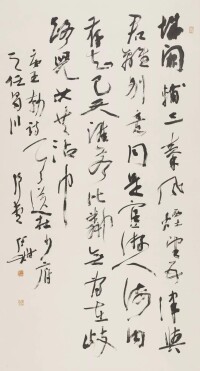 城闕輔三秦風煙望五津與
君離別意同是宦游人海內
存知己天涯若比鄰無為在歧
路兒女共沾巾
王勃詩送杜少府
之任蜀川